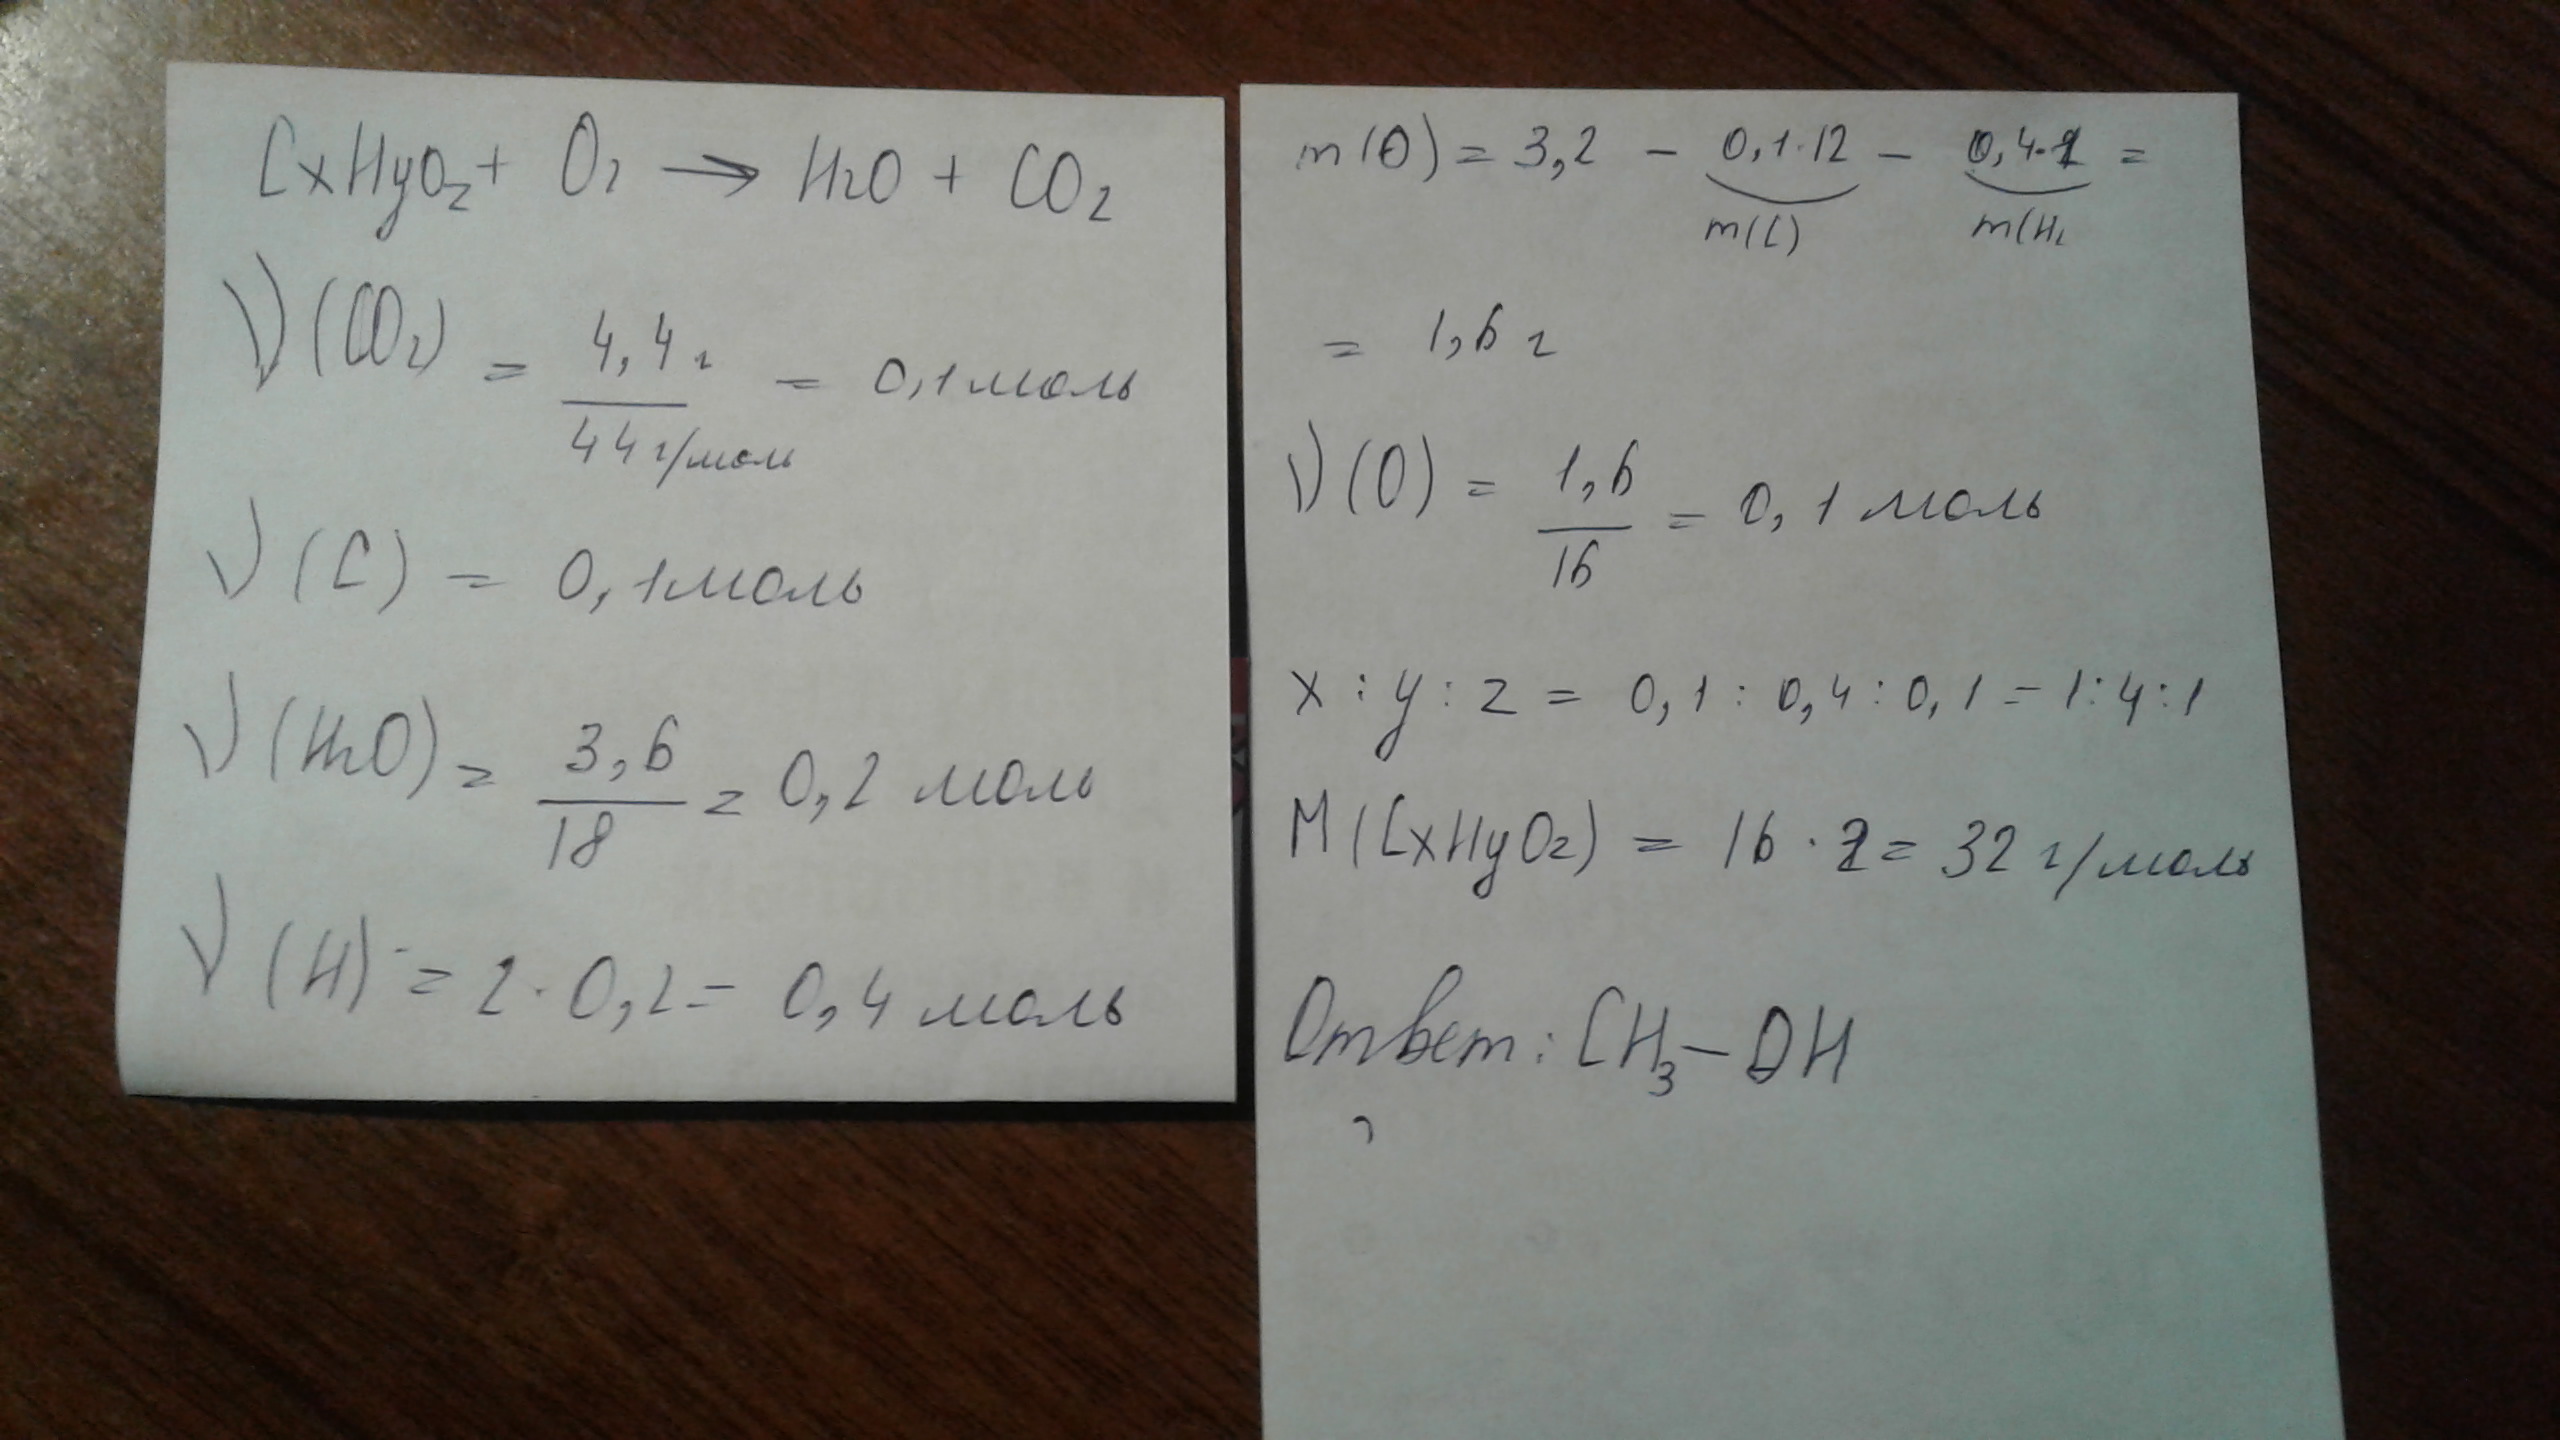 CxHyOz + O2 → H2O + CO2
ν(CO2) = 4,4 г / 44 г/моль = 0,1 моль
ν(C) = 0,1 моль
ν(H2O) = 3,6 / 18 = 0,2 моль
ν(H) = 2 · 0,2 = 0,4 моль
m(O) = 3,2 - 0,1·12 - 0,4·1 =
m(C) m(H)
= 1,6 г
ν(O) = 1,6 / 16 = 0,1 моль
x : y : z = 0,1 : 0,4 : 0,1 = 1:4:1
M(CxHyOz) = 16 · 2 = 32 г/моль
Ответ: CH3-OH